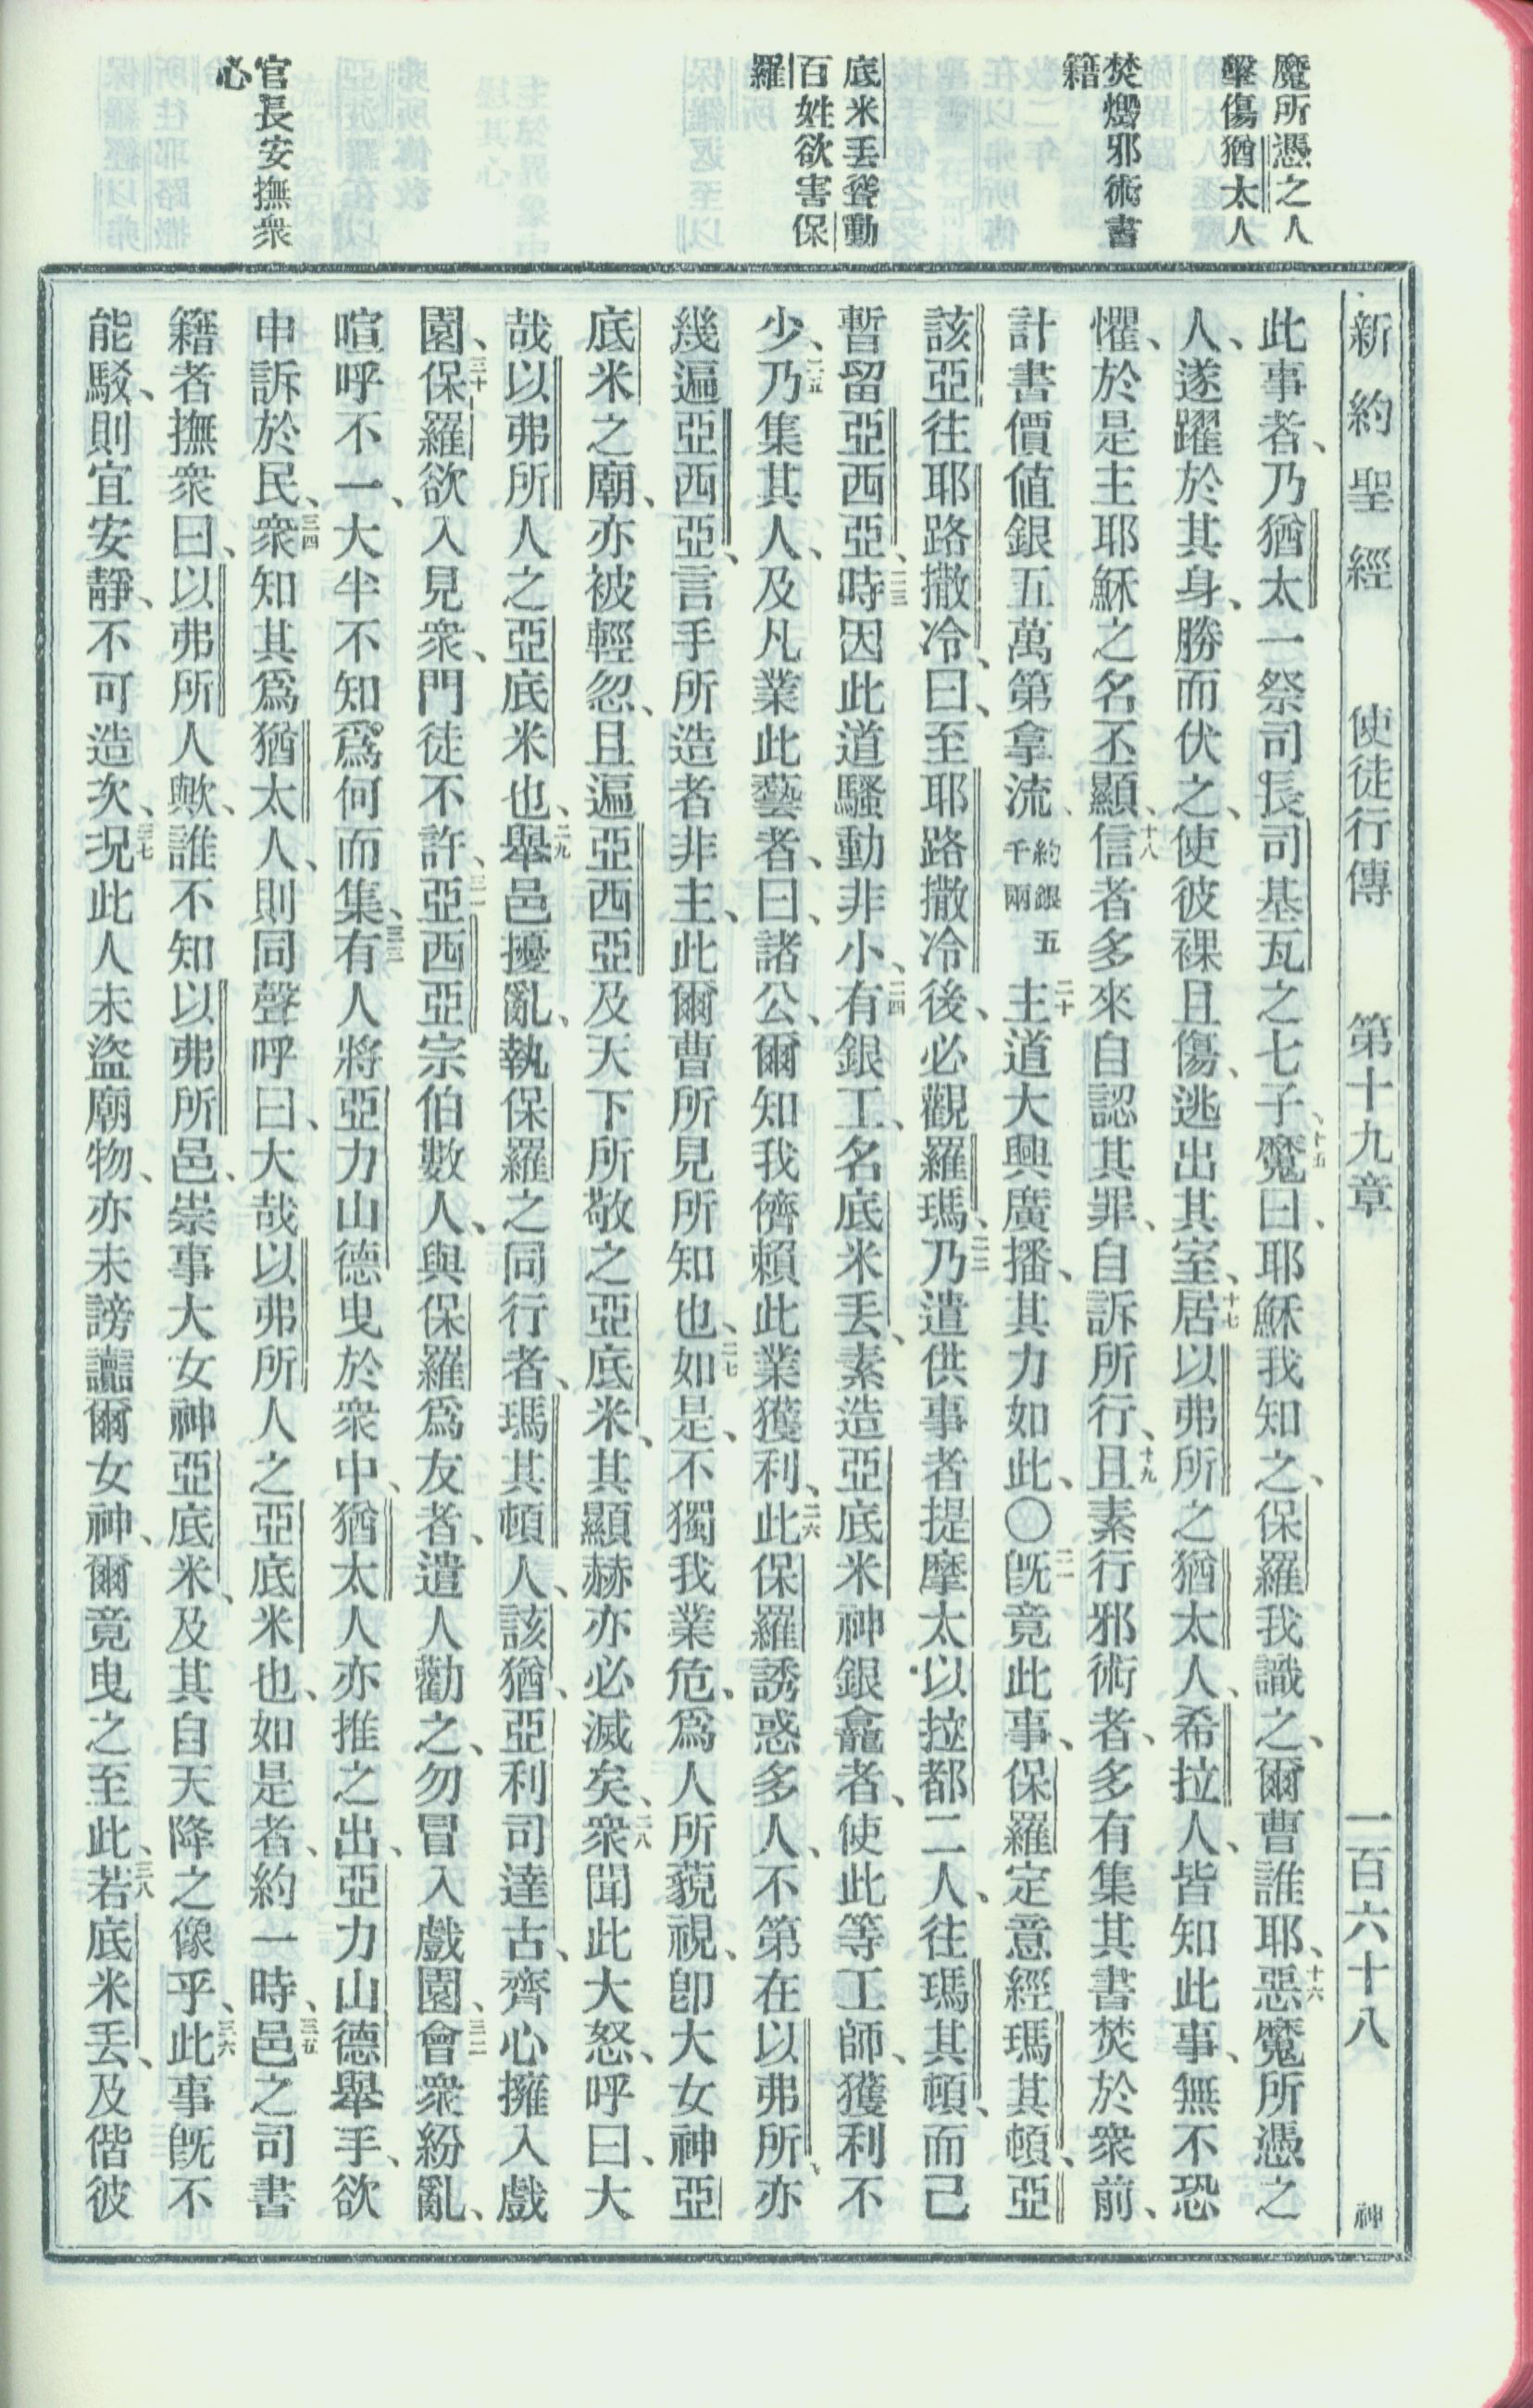 魔所憑之人
擊傷猶太人
焚燬邪術書
籍
底米丢聳動
百姓欲害保
羅
官長安撫衆
心
新約聖經 使徒行傳 第十九章 一百六十八 神
此事者、乃猶太一祭司長司基瓦之七子、十五魔曰、耶穌我知之、保羅我識之、爾曹誰耶、十六惡魔所憑之
人、遂躍於其身、勝而伏之、使彼裸且傷、逃出其室、十七居以弗所之猶太人、希拉人、皆知此事、無不恐
懼、於是主耶穌之名丕顯、十八信者多來自認其罪、自訴所行、十九且素行邪術者、多有集其書焚於衆前、
計書價值銀五萬第拿流、約銀五千兩二十主道大興廣播、其力如此、〇二一旣竟此事、保羅定意經瑪其頓、亞
該亞往耶路撒冷、曰、至耶路撒冷後、必觀羅瑪、二二乃遣供事者提摩太以拉都二人、往瑪其頓、而己
暫留亞西亞、二三時因此道騷動非小、二四有銀工、名底米丢、素造亞底米神銀龕者、使此等工師、獲利不
少、二五乃集其人、及凡業此藝者、曰、諸公、爾知我儕賴此業獲利、二六此保羅誘惑多人、不第在以弗所、亦
幾遍亞西亞、言手所造者非主、此爾曹所見所知也、二七如是、不獨我業危、爲人所藐視、卽大女神亞
底米之廟、亦被輕忽、且遍亞西亞及天下所敬之亞底米、其顯赫亦必滅矣、二八衆聞此大怒、呼曰、大
哉以弗所人之亞底米也、二九舉邑擾亂、執保羅之同行者、瑪其頓人、該猶、亞利司達古、齊心擁入戲
園、三十保羅欲入見衆、門徒不許、三一亞西亞宗伯數人、與保羅爲友者、遣人勸之、勿冒入戲園、三二會衆紛亂、
喧呼不一、大半不知爲何而集、三三有人將亞力山德曳於衆中、猶太人亦推之出、亞力山德舉手、欲
申訴於民、三四衆知其爲猶太人、則同聲呼曰、大哉以弗所人之亞底米也、如是者、約一時、三五邑之司書
籍者撫衆曰、以弗所人歟、誰不知以弗所邑、崇事大女神亞底米、及其自天降之像乎、三六此事旣不
能駁、則宜安靜、不可造次、三七況此人未盜廟物、亦未謗讟爾女神、爾竟曳之至此、三八若底米丢、及偕彼